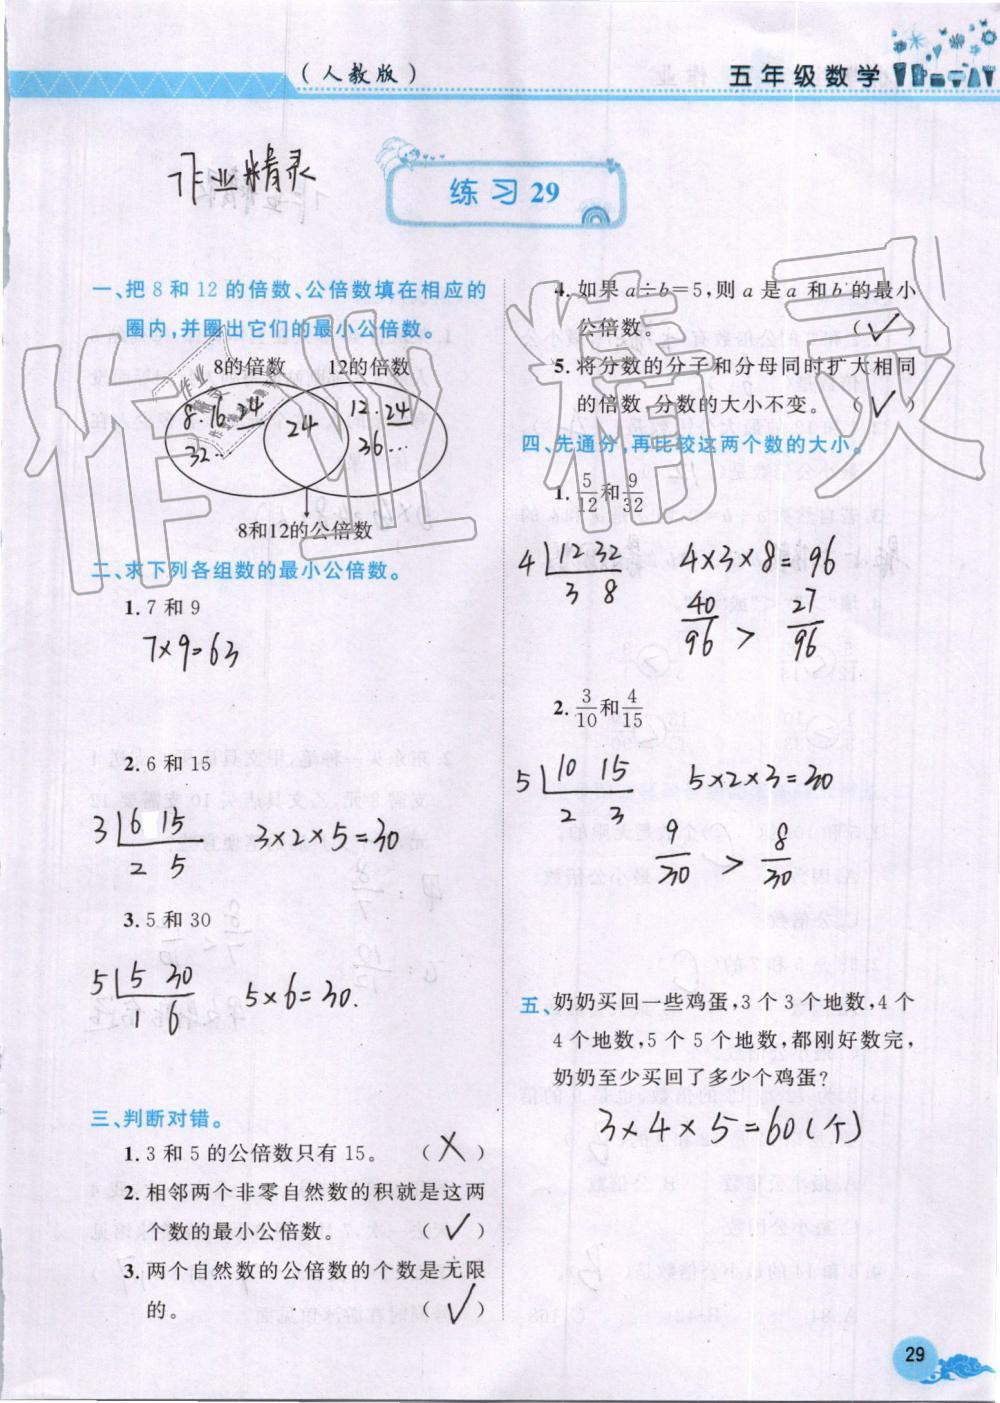 (人教版)
五年级数学
作业精灵
练习 29
一、把 8 和 12 的倍数、公倍数填在相应的
圈内,并圈出它们的最小公倍数。
8的倍数 12的倍数
8.16 24
32...
24
12.24
36...
8和12的公倍数
二、求下列各组数的最小公倍数。
1. 7 和 9
7×9=63
2. 6 和 15
3 6 15
2 5
3×2×5=30
3. 5 和 30
5 5 30
1 6
5×6=30.
三、判断对错。
1. 3 和 5 的公倍数只有 15。 (×)
2. 相邻两个非零自然数的积就是这两
个数的最小公倍数。 (√)
3. 两个自然数的公倍数的个数是无限
的。 (√)
4. 如果 a÷b=5,则 a 是 a 和 b 的最小
公倍数。 (√)
5. 将分数的分子和分母同时扩大相同
的倍数,分数的大小不变。 (√)
四、先通分,再比较这两个数的大小。
1. 5/12 和 9/32
4 12 32
3 8
4×3×8=96
40/96 > 27/96
2. 3/10 和 4/15
5 10 15
2 3
5×2×3=30
9/30 > 8/30
五、奶奶买回一些鸡蛋,3 个 3 个地数,4 个
4 个地数,5 个 5 个地数,都刚好数完,
奶奶至少买回了多少个鸡蛋?
3×4×5=60(个)
29
作业精灵